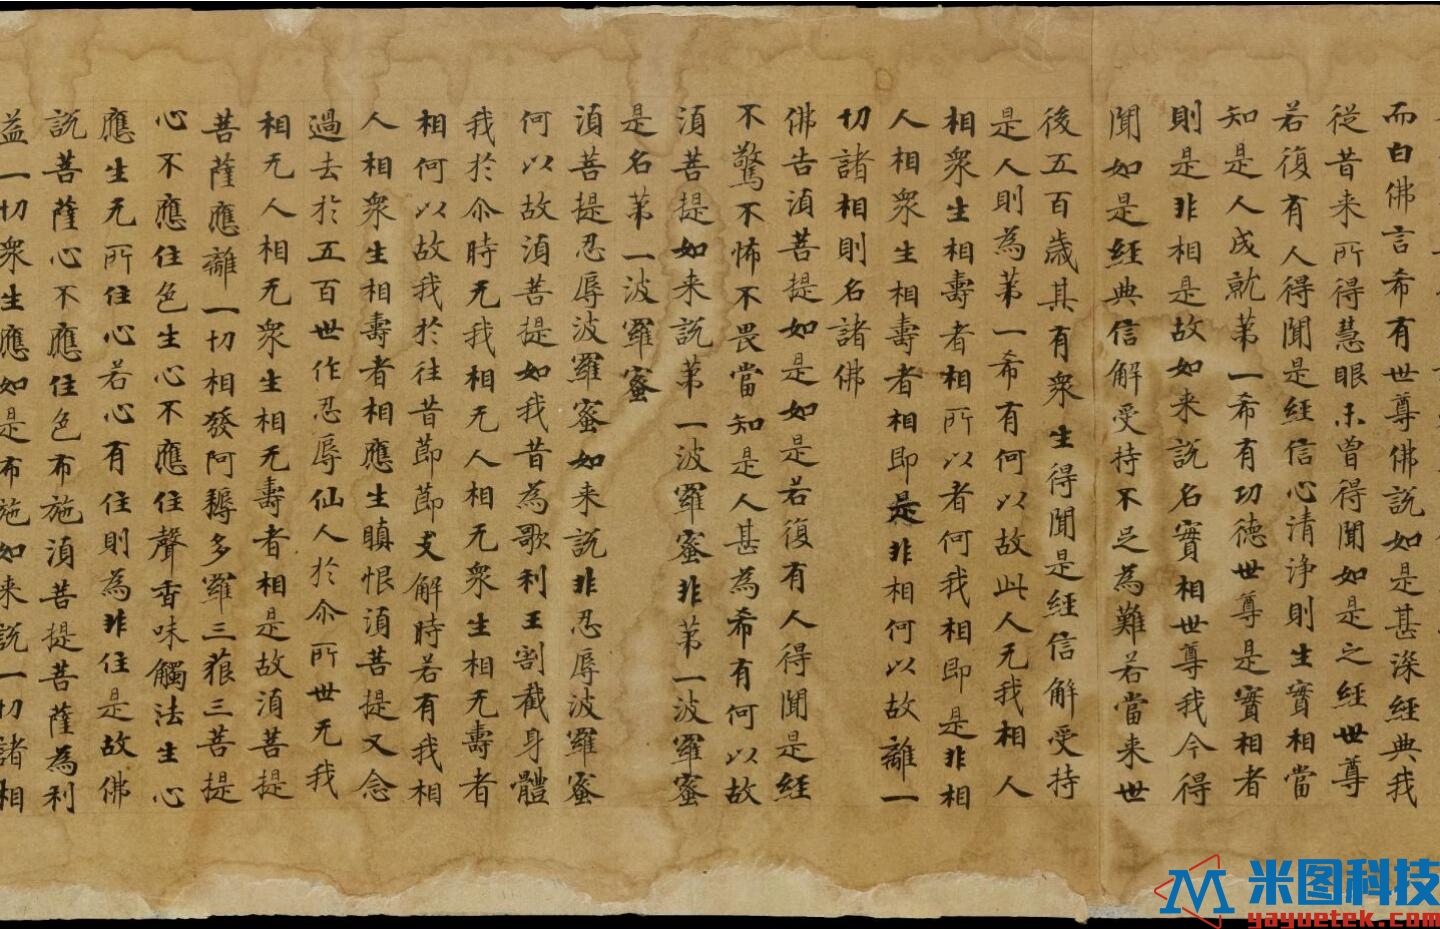 而白佛言希有世尊佛說如是甚深經典我
從昔来所得慧眼未曾得聞如是之經世尊
若復有人得聞是經信心清淨則生實相當
知是人成就苐一希有功德世尊是實相者
則是非相是故如来說名實相世尊我今得
聞如是經典信解受持不足為難若當来世
後五百歲其有衆生得聞是經信解受持
是人則為苐一希有何以故此人无我相人
相衆生相壽者相所以者何我相即是非相
人相衆生相壽者相即是非相何以故離一
切諸相則名諸佛
佛告湏菩提如是如是若復有人得聞是經
不驚不怖不畏當知是人甚為希有何以故
湏菩提如来說苐一波羅蜜非苐一波羅蜜
是名苐一波羅蜜
湏菩提忍辱波羅蜜如来說非忍辱波羅蜜
何以故湏菩提如我昔為歌利王割截身體
我於尒時无我相无人相无衆生相无壽者
相何以故我於往昔莭莭支解時若有我相
人相衆生相壽者相應生瞋恨湏菩提又念
過去於五百世作忍辱仙人於尒所世无我
相无人相无衆生相无壽者相是故湏菩提
菩薩應離一切相發阿耨多羅三藐三菩提
心不應住色生心不應住聲香味觸法生心
應生无所住心若心有住則為非住是故佛
說菩薩心不應住色布施湏菩提菩薩為利
益一切衆生應如是布施如来說一切諸相
米图科技
yayuetek.com